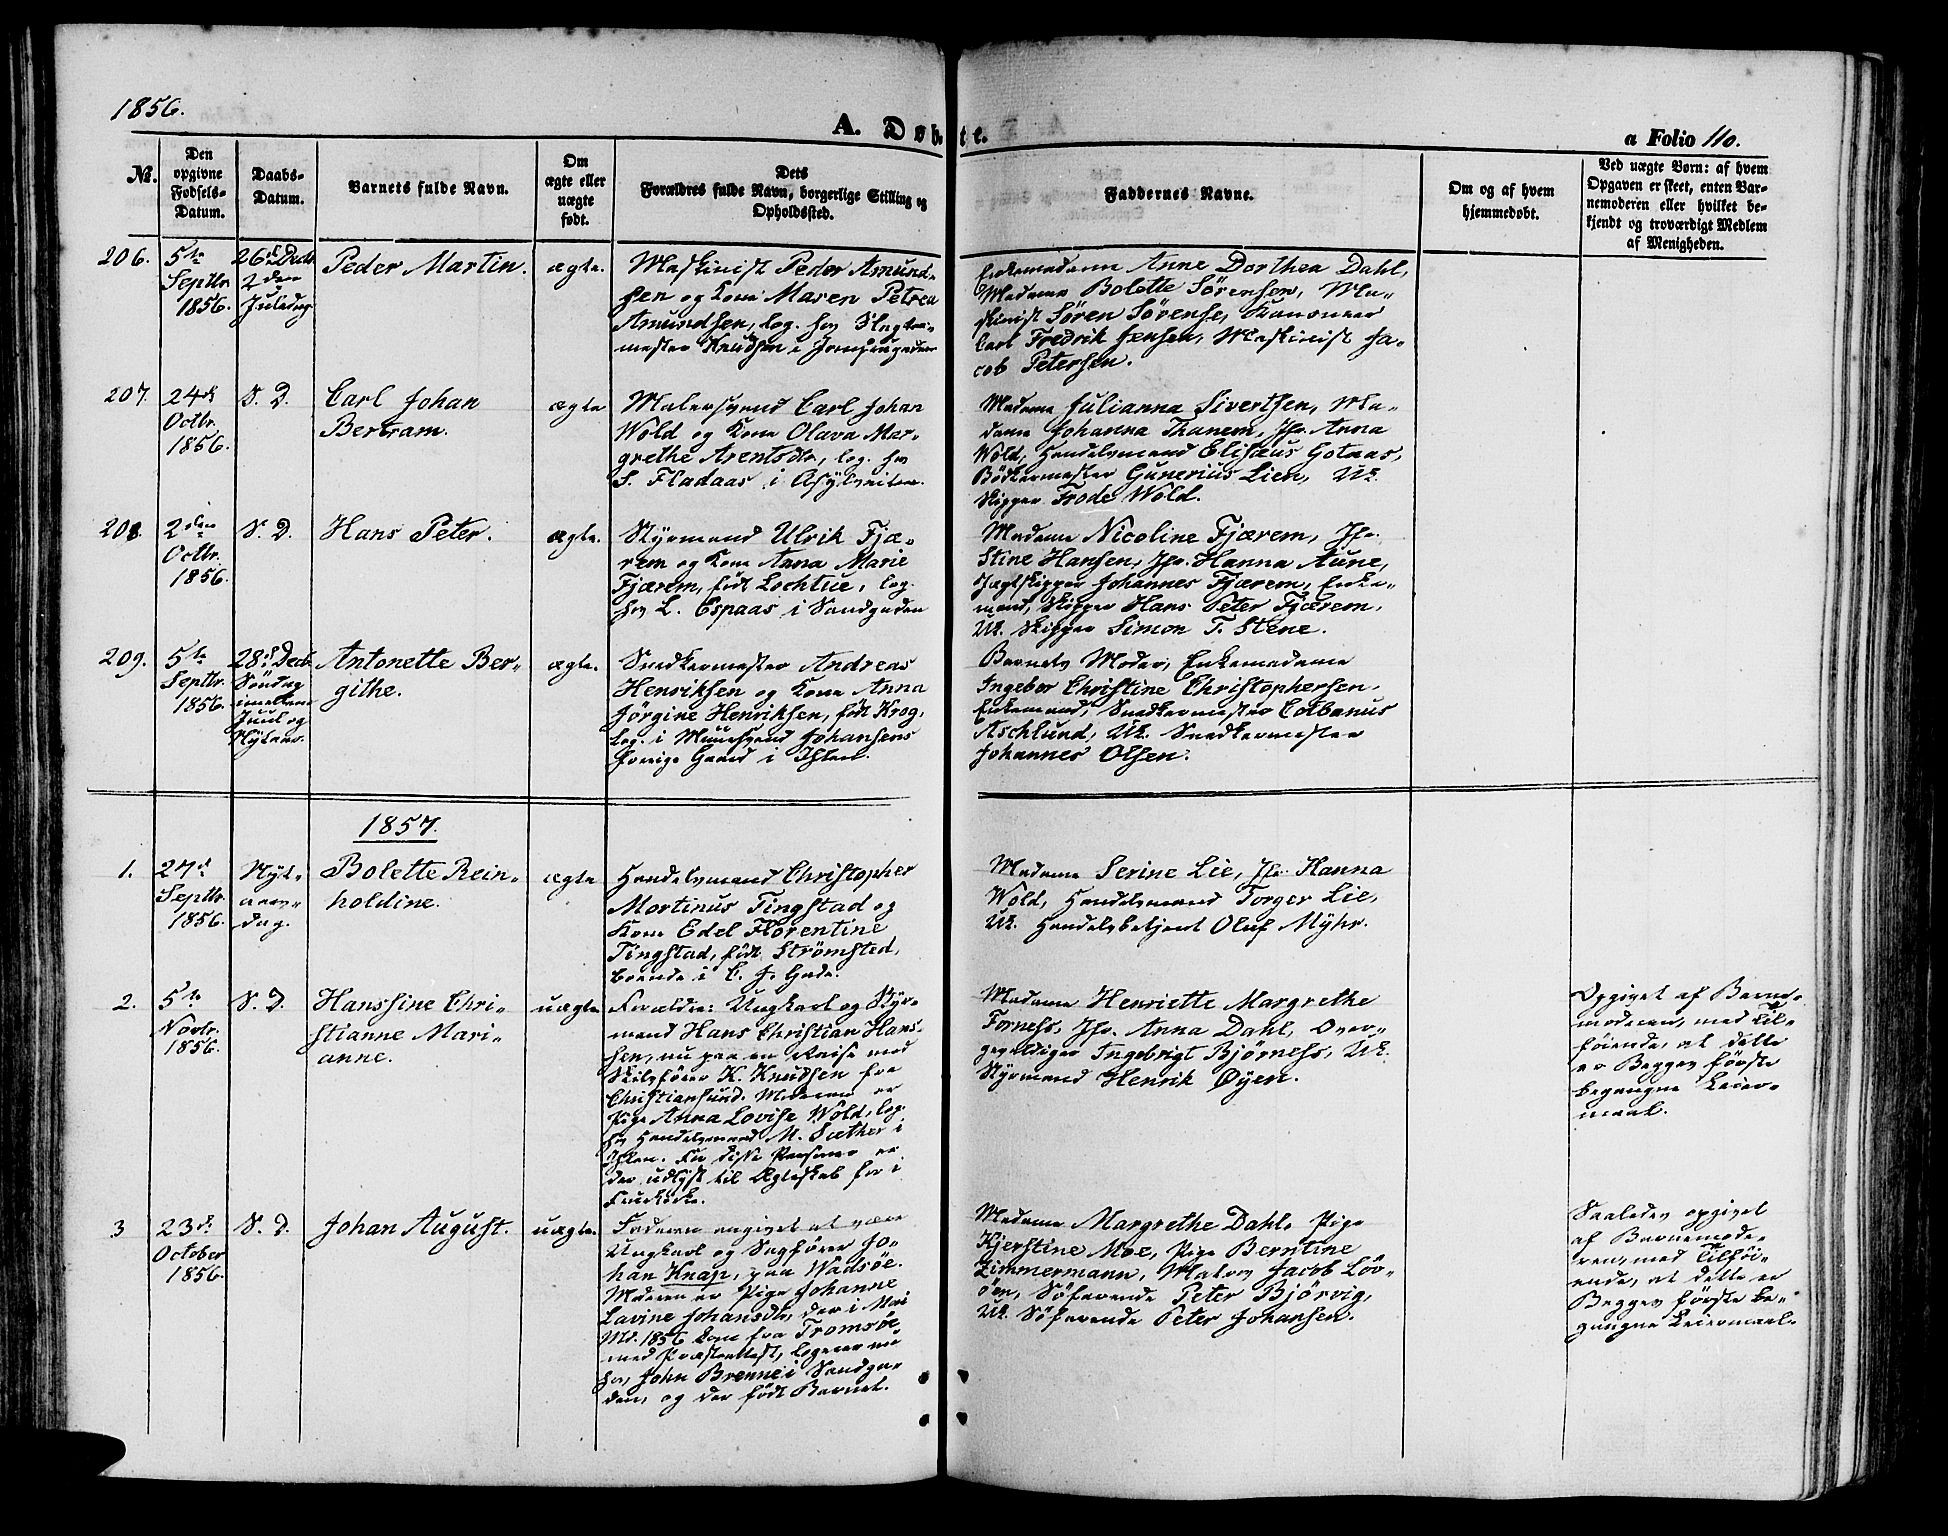 1856.
A. Døbte.
a Folio 110.
No.
Den opgivne Fødsels-Datum.
Daabs-Datum.
Barnets fulde Navn.
Om ægte eller uægte født.
Dets Forældres fulde Navn, borgerlige Stilling og Opholdssted.
Faddernes Navne.
Om og af hvem hjemmedøbt.
Ved uægte Børn: af hvem Opgaven er skeet, enten Barnemoderen eller hvilket bekjendt og troværdigt Medlem af Menigheden.
206.
5te
Septbr.
1856.
26de Decbr
2den
Juledag
Peder Martin.
ægte.
Maskinist Peder Amund-
sen og Kone Maren Petrea
Amundsen, log. hos Slagter-
mester Knudsen i Jomfrugaden
Enkemadame Anne Dorthea Dahl,
Madame Bolette Sörensen, Ma-
skinist Sören Sörensen, Kanoneer
Carl Fredrik Jensen, Maskinist Ja-
cob Petersen.
207.
24de
Octbr.
1856.
S. D.
Carl Johan
Bertram.
ægte
Malersvend Carl Johan
Wold og Kone Olava Mar-
grethe Arentsdtr, log. hos
S. Fladaas i Asylveiten.
Madame Julianna Sivertsen, Ma-
dame Johanna Thanem, Jfr. Anna
Wold, Handelsmand Elisæus Gotaas,
Bödkermester Gunerius Lien, Uk.
Skipper Frode Wold.
208.
2den
Octbr.
1856.
S. D.
Hans Peter.
ægte.
Styrmand Ulrik Fjæ-
rem og Kone Anna Marie
Fjærem, födt Lochtue, log.
hos L. Espaas i Sandgaden
Madame Nicoline Fjærem, Jfr.
Stine Hansen, Jfr. Hanna Aune,
Jagtskipper Johannes Fjærem, Enke-
mand, Skipper Hans Peter Fjærem,
Uk. Skipper Simon T. Stene.
209.
5te
Septbr.
1856.
28de Decb.
Söndag
imellem
Juul og
Nytaar.
Antonette Ber-
githe.
ægte.
Snedkermester Andreas
Henriksen og Kone Anna
Jörgine Henriksen, födt Krog,
log. i Muursvend Johansens
forrige Gaard i Ihlen.
Barnets Moder, Enkemadame
Ingebor Christine Christophersen.
Enkemand, Snedkermester Colbanus
Aschlund, Uk. Snedkermester
Johannes Olsen.
1857.
1.
27de
Septbr.
1856.
Nyt-
aars-
dag.
Bolette Rein-
holdine.
ægte
Handelsmand Christopher
Mortinus Tingstad og
Kone Edel Florentine
Tingstad, födt Strömsted,
boende i C. J. Gade.
Madame Serine Lie, Jfr. Hanna
Wold, Handelsmand Torger Lie,
Uk. Handelsbetjent Oluf Myhr.
2.
5te
Novbr.
1856.
S. D.
Hanssine Chri-
stianne Mari-
anne.
uægte
Forældre: Ungkarl og Styr-
mand Hans Christian Hans-
sen, nu paa en Reise med
Skibsförer K. Knudsen fra
Christiansund. Moderen er
Pige Anna Lovise Wold, log.
hos Handelsmand M. Sæther i
Ihlen. For disse Personer er
der udlyst til Ægteskab her i
Fruekirke.
Madame Henriette Margrethe
Forness, Jfr. Anna Dahl, Över-
gevaldiger Ingebrigt Björness, Uk.
Styrmand Henrik Öyen.
Opgivet af Barne-
moderen, med Til-
föiende, at dette
er Begges förste
begangne Leier-
maal.
3
23de
October
1856.
S. D.
Johan August.
uægte.
Faderen angivet at være
Ungkarl og Sagförer Jo-
han Knap, paa Wadsöe.
Moderen er Pige Johanne
Lavine Johansdtr, der i Mai
Md. 1856 kom fra Tromsöe
med Præsteattest, logerer nu
hos John Brenne i Sandga-
den, og der födt Barnet.
Madame Margrethe Dahl, Pige
Kjerstine Moe, Pige Berntine
Zimmermann, Maler Jacob Löv-
öen, Söfarende Peter Björvig,
Uk. Söfarende Peter Johansen.
Saaledes opgivet
af Barnemode-
ren, med Tilföi-
ende, at dette er
Begges förste be-
gangne Leiermaal.